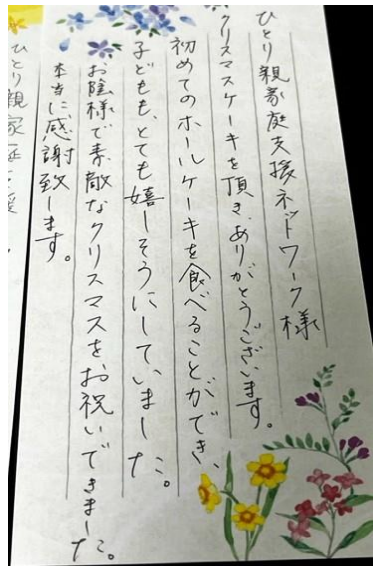 ひとり親家庭支援ネットワーク様
クリスマスケーキを頂き、ありがとうございます。
初めてのホールケーキを食べることができ、
子どもも、とても嬉しそうにしていました。
お陰様で素敵なクリスマスをお祝いできました。
本当に感謝致します。
ひとり親家庭支援